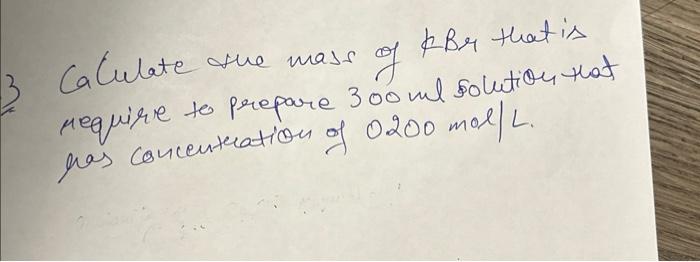 3 Calulate the mass of KBr that is
require to prepare 300 ml solution that
has concentration of 0200 mol/L.